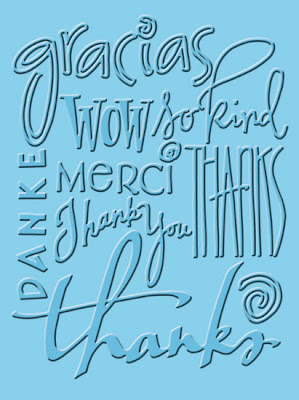 gracias
WOW so kind
DANKE
MERCI THANKS
Thank You
thanks